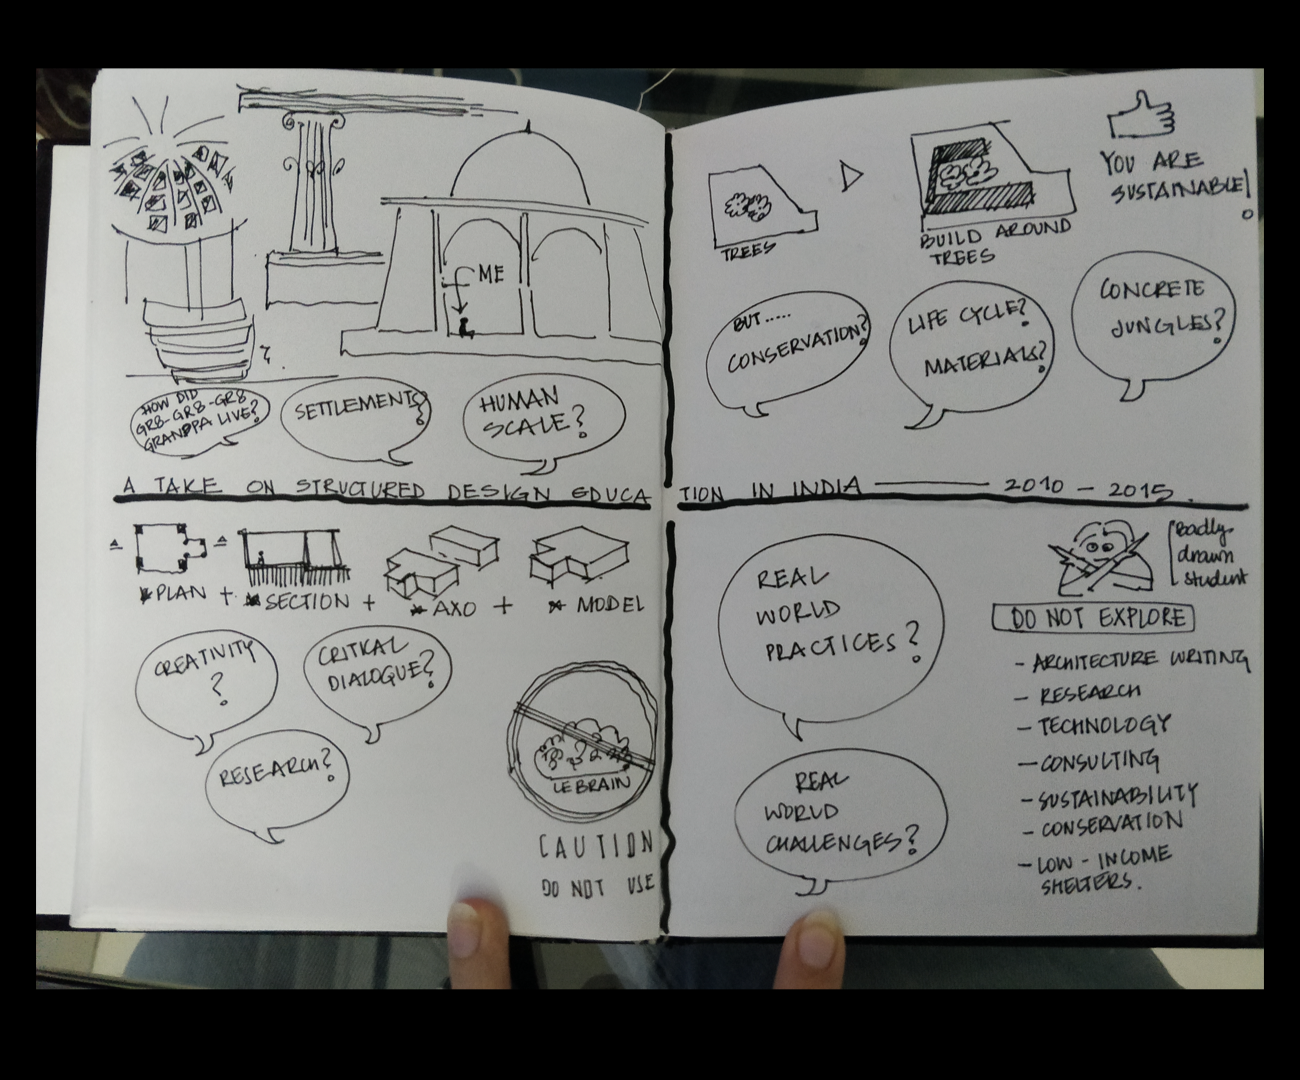 ME
HOW DID
GR8-GR8-GR8
GRANDPA LIVE?
SETTLEMENTS?
HUMAN
SCALE?
TREES
BUILD AROUND
TREES
YOU ARE
SUSTAINABLE!
BUT.....
CONSERVATION?
LIFE CYCLE?
MATERIALS?
CONCRETE
JUNGLES?
A TAKE ON STRUCTURED DESIGN EDUCATION IN INDIA — 2010 - 2015.
PLAN + SECTION + AXO + MODEL
CREATIVITY
?
CRITICAL
DIALOGUE?
RESEARCH?
LE BRAIN
CAUTION
DO NOT USE
REAL
WORLD
PRACTICES?
REAL
WORLD
CHALLENGES?
Badly
drawn
student
DO NOT EXPLORE
- ARCHITECTURE WRITING
- RESEARCH
- TECHNOLOGY
- CONSULTING
- SUSTAINABILITY
- CONSERVATION
- LOW - INCOME
SHELTERS.